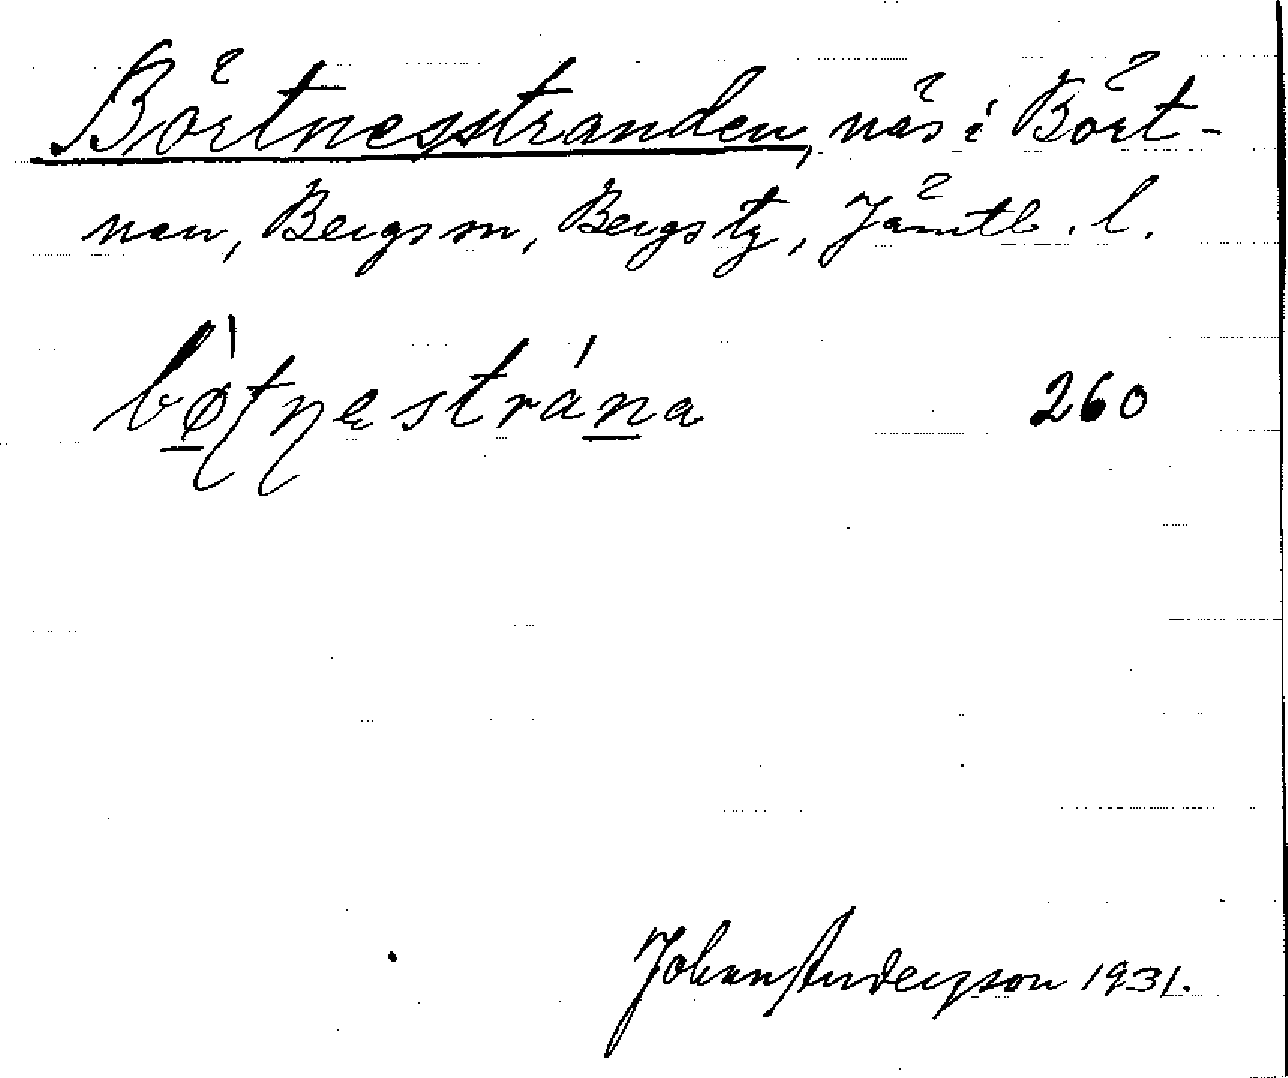 Börtnesstranden, näs i Bört-
nan, Bergs sn, Bergs tg, Jämtl. l.
bø̠̀ʈɳestrána̠ 260
Johan Anderson 1931.